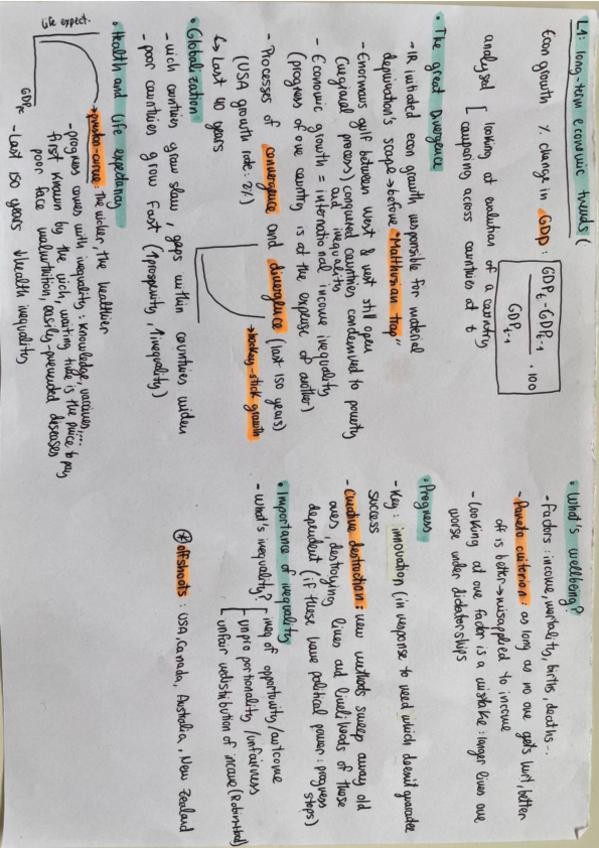 L1: long-term economic trends (
Econ growth % change in GDP: GDPt - GDPt-1 / GDPt-1 · 100
analysed [ looking at evolution of a country
comparing across countries at t
• The great Divergence
- IR initiated econ growth responsible for material
deprivation's scape → before "Malthusian trap"
- Enormous gulf between west & rest still open
(unequal process) conquered countries condemned to poverty
and inequality
- Economic growth = international income inequality
(progress of one country is at the expense of another)
- Processes of convergence and divergence (last 150 years)
(USA growth rate: 2%)
↳ Last 40 years
→ hockey-stick growth
• Globalization
- rich countries grow slow, gaps within countries widen
- poor countries grow fast (↑prosperity, ↑inequality)
• Health and life expectancy
life expect.
GDPpc
→ preston-curve: the richer, the healthier
- progress comes with inequality: knowledge, vaccines,...
first known by the rich, waiting time is the price to pay
poor face malnutrition, easily-prevented diseases
- Last 150 years ↓Health inequality
• What's wellbeing?
- Factors: income, mortality, births, deaths...
- Pareto criterion: as long as no one gets hurt, better
off is better → misapplied to income
- Looking at one factor is a mistake: longer lives are
worse under dictatorships
• Progress
- Key: innovation (in response to need which doesn't guarantee
success
- Creative destruction: new methods sweep away old
ones, destroying lives and livelihoods of those
dependent (if these have political power: progress
stops)
• Importance of inequality
- What's inequality? [ ineq of opportunity/outcome
unproportionality/unfairness
unfair redistribution of income (Robin Hood)
* offshoots: USA, Canada, Australia, New Zealand